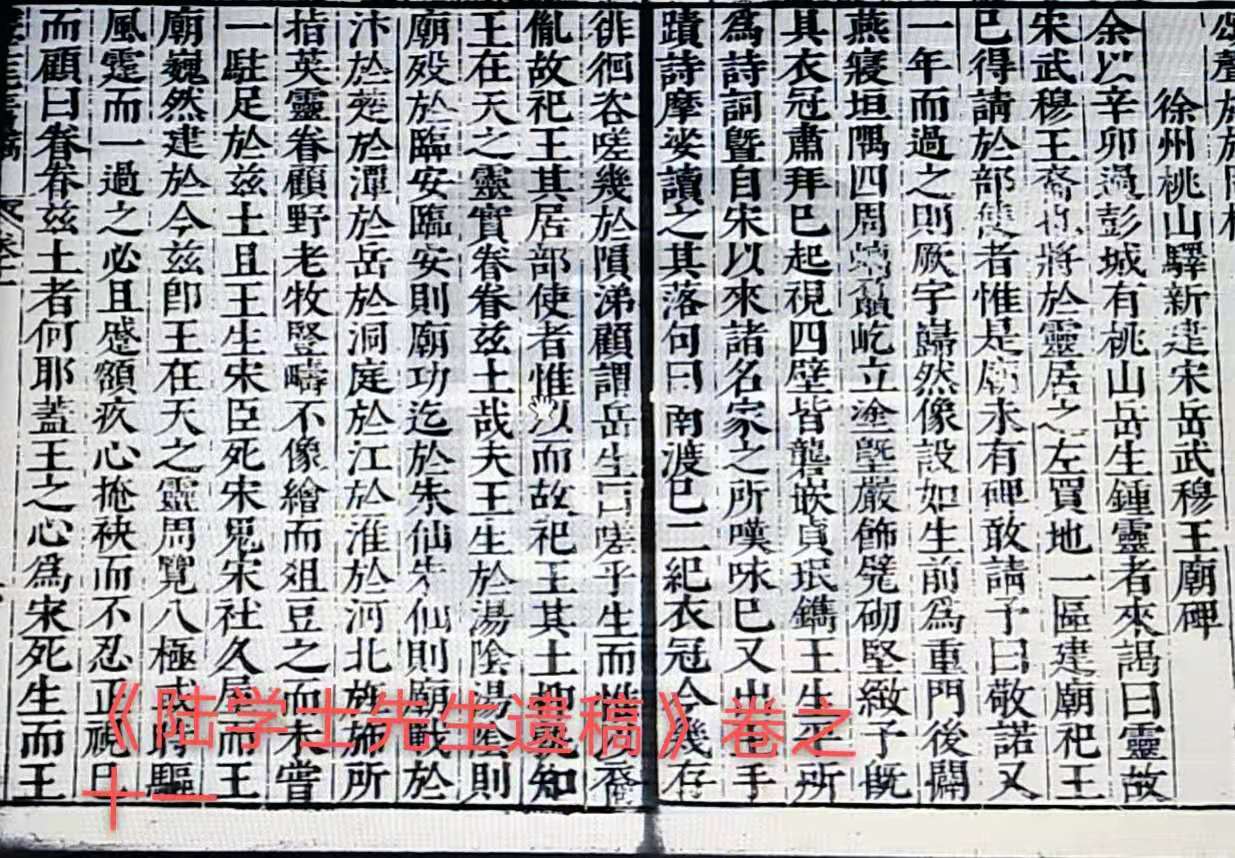 徐州桃山驛新建宋岳武穆王廟碑
余以辛卯過彭城有桃山岳生鍾靈者來謁曰靈故
宋武穆王裔也將於靈居之左買地一區建廟祀王
已得請於部使者惟是廟未有碑敢請予曰敬諾又
一年而過之則厥宇巋然像設如生前為重門後闢
燕寢垣隅四周屹立塗墍嚴飾甃砌堅緻予既
具衣冠肅拜已起視四壁皆礱嵌貞珉鐫王生平所
為詩詞暨自宋以來諸名家之所嘆味已又出王手
蹟詩摩娑讀之其落句曰南渡已二紀衣冠今幾存
徘徊咨嗟幾於隕涕顧謂岳生曰嗟乎生而裔
胤故祀王其居部使者惟以而故祀王其土知
王在天之靈實眷眷兹土哉夫王生於湯陰湯陰則
廟歿於臨安臨安則廟功迄於朱仙朱仙則廟戰於
汴於於潭於岳於洞庭於江於淮於河北旆所
指英靈眷顧野老牧豎疇不像繪而俎豆之而未嘗
一駐足於兹土且王生宋臣死宋鬼宋社久屋而王
廟巍然建於今兹卽王在天之靈周覽八極或時驅
風霆而一過之必且蹙額疚心掩袂而不忍正視
而顧曰眷眷兹土者何耶蓋王之心為宋死生而王
《陆学士先生遗稿》卷之
十一